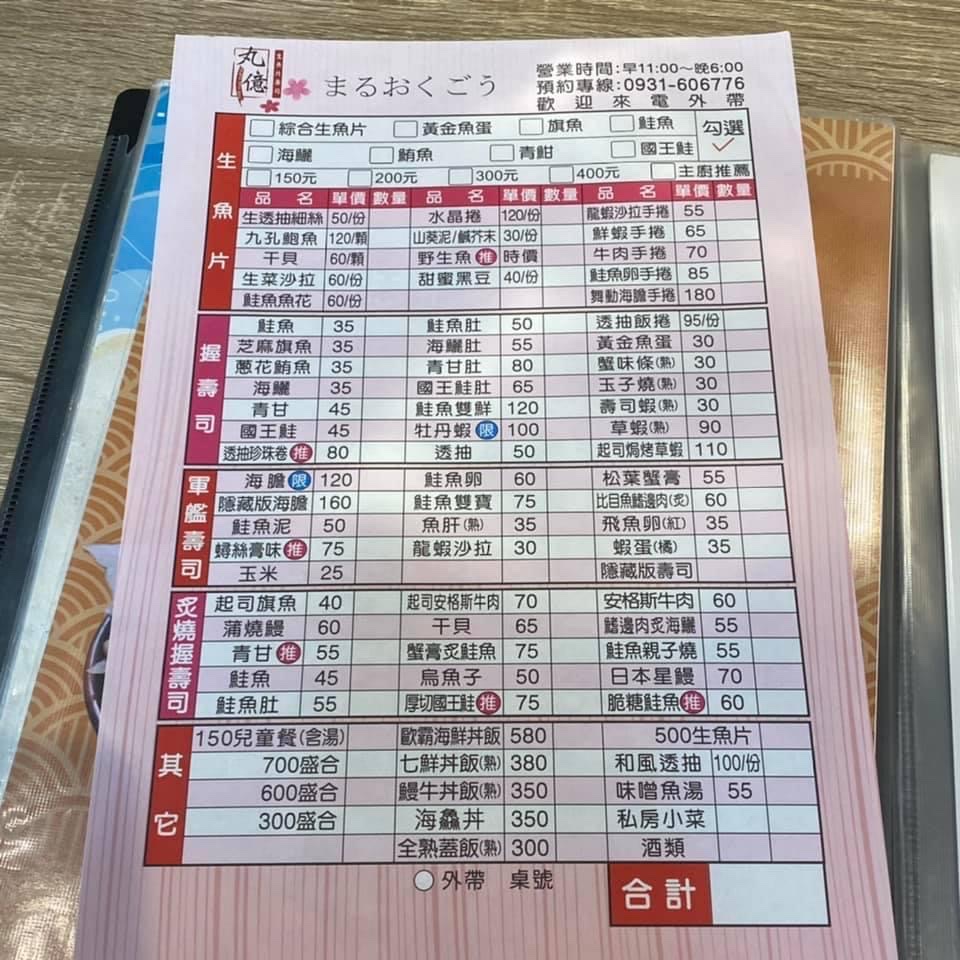 丸億
まるおくごう
營業時間:早11:00~晚6:00
預約專線:0931-606776
歡迎來電外帶
生魚片
綜合生魚片 黃金魚蛋 旗魚 鮭魚 勾選
海鱺 鮪魚 青魽 國王鮭
150元 200元 300元 400元 主廚推薦
品名 單價 數量 品名 單價 數量 品名 單價 數量
生透抽細絲 50/份 水晶捲 120/份 龍蝦沙拉手捲 55
九孔鮑魚 120/顆 山葵泥/鹹芥末 30/份 鮮蝦手捲 65
干貝 60/顆 野生魚 推 時價 牛肉手捲 70
生菜沙拉 60/份 甜蜜黑豆 40/份 鮭魚卵手捲 85
鮭魚魚花 60/份 舞動海膽手捲 180
握壽司
鮭魚 35 鮭魚肚 50 透抽飯捲 95/份
芝麻旗魚 35 海鱺肚 55 黃金魚蛋 30
蔥花鮪魚 35 青甘肚 80 蟹味條(熟) 30
海鱺 35 國王鮭肚 65 玉子燒(熟) 30
青甘 45 鮭魚雙鮮 120 壽司蝦(熟) 30
國王鮭 45 牡丹蝦 限 100 草蝦(熟) 90
透抽珍珠卷 推 80 透抽 50 起司焗烤草蝦 110
軍艦壽司
海膽 限 120 鮭魚卵 60 松葉蟹膏 55
隱藏版海膽 160 鮭魚雙寶 75 比目魚鰭邊肉(炙) 60
鮭魚泥 50 魚肝(熟) 35 飛魚卵(紅) 35
蟳絲膏味 推 75 龍蝦沙拉 30 蝦蛋(橘) 35
玉米 25 隱藏版壽司
炙燒握壽司
起司旗魚 40 起司安格斯牛肉 70 安格斯牛肉 60
蒲燒鰻 60 干貝 65 鰭邊肉炙海鱺 55
青甘 推 55 蟹膏炙鮭魚 75 鮭魚親子燒 55
鮭魚 45 烏魚子 50 日本星鰻 70
鮭魚肚 55 厚切國王鮭 推 75 脆糖鮭魚 推 60
其它
150兒童餐(含湯) 歐霸海鮮丼飯 580 500生魚片
700盛合 七鮮丼飯(熟) 380 和風透抽 100/份
600盛合 鰻牛丼飯(熟) 350 味噌魚湯 55
300盛合 海鱻丼 350 私房小菜
全熟蓋飯(熟) 300 酒類
外帶 桌號 合計